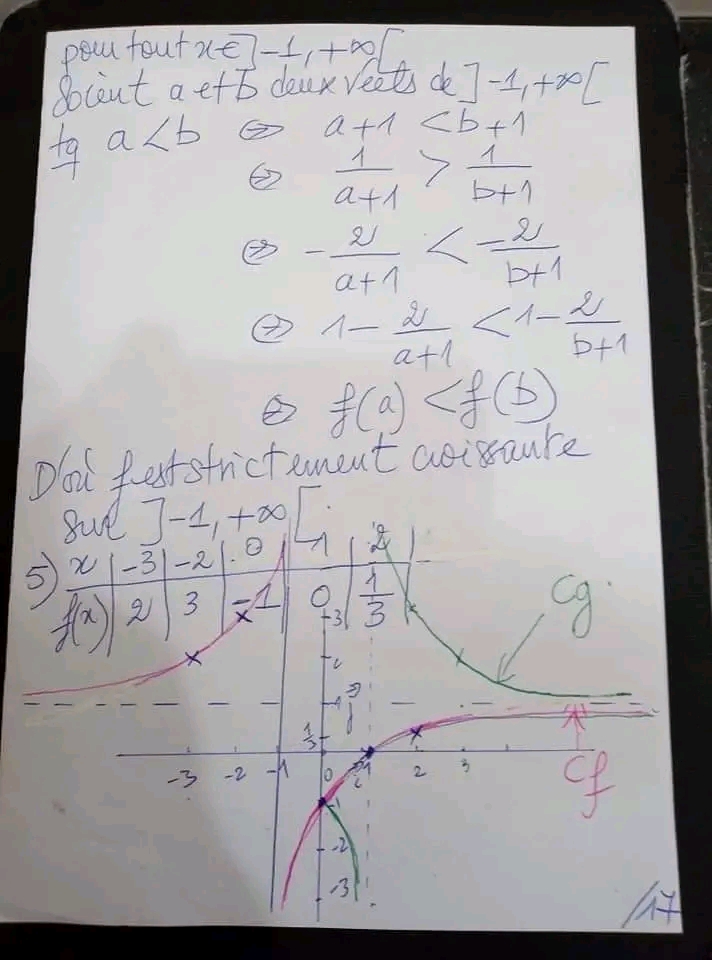 pour tout x ∈ ]-1, +∞[
Soient a et b deux réels de ]-1, +∞[
tq a < b ⇔ a+1 < b+1
⇔ 1/(a+1) > 1/(b+1)
⇔ -2/(a+1) < -2/(b+1)
⇔ 1 - 2/(a+1) < 1 - 2/(b+1)
⇔ f(a) < f(b)
D'où f est strictement croissante
sur ]-1, +∞[
5) x | -3 | -2 | 0 | 1 | 2
f(x) | 2 | 3 | -1 | 0 | 1/3
Cg
3
1/3
-3 -2 -1 0 1 2 3
Cf
-1
-2
-3
/17